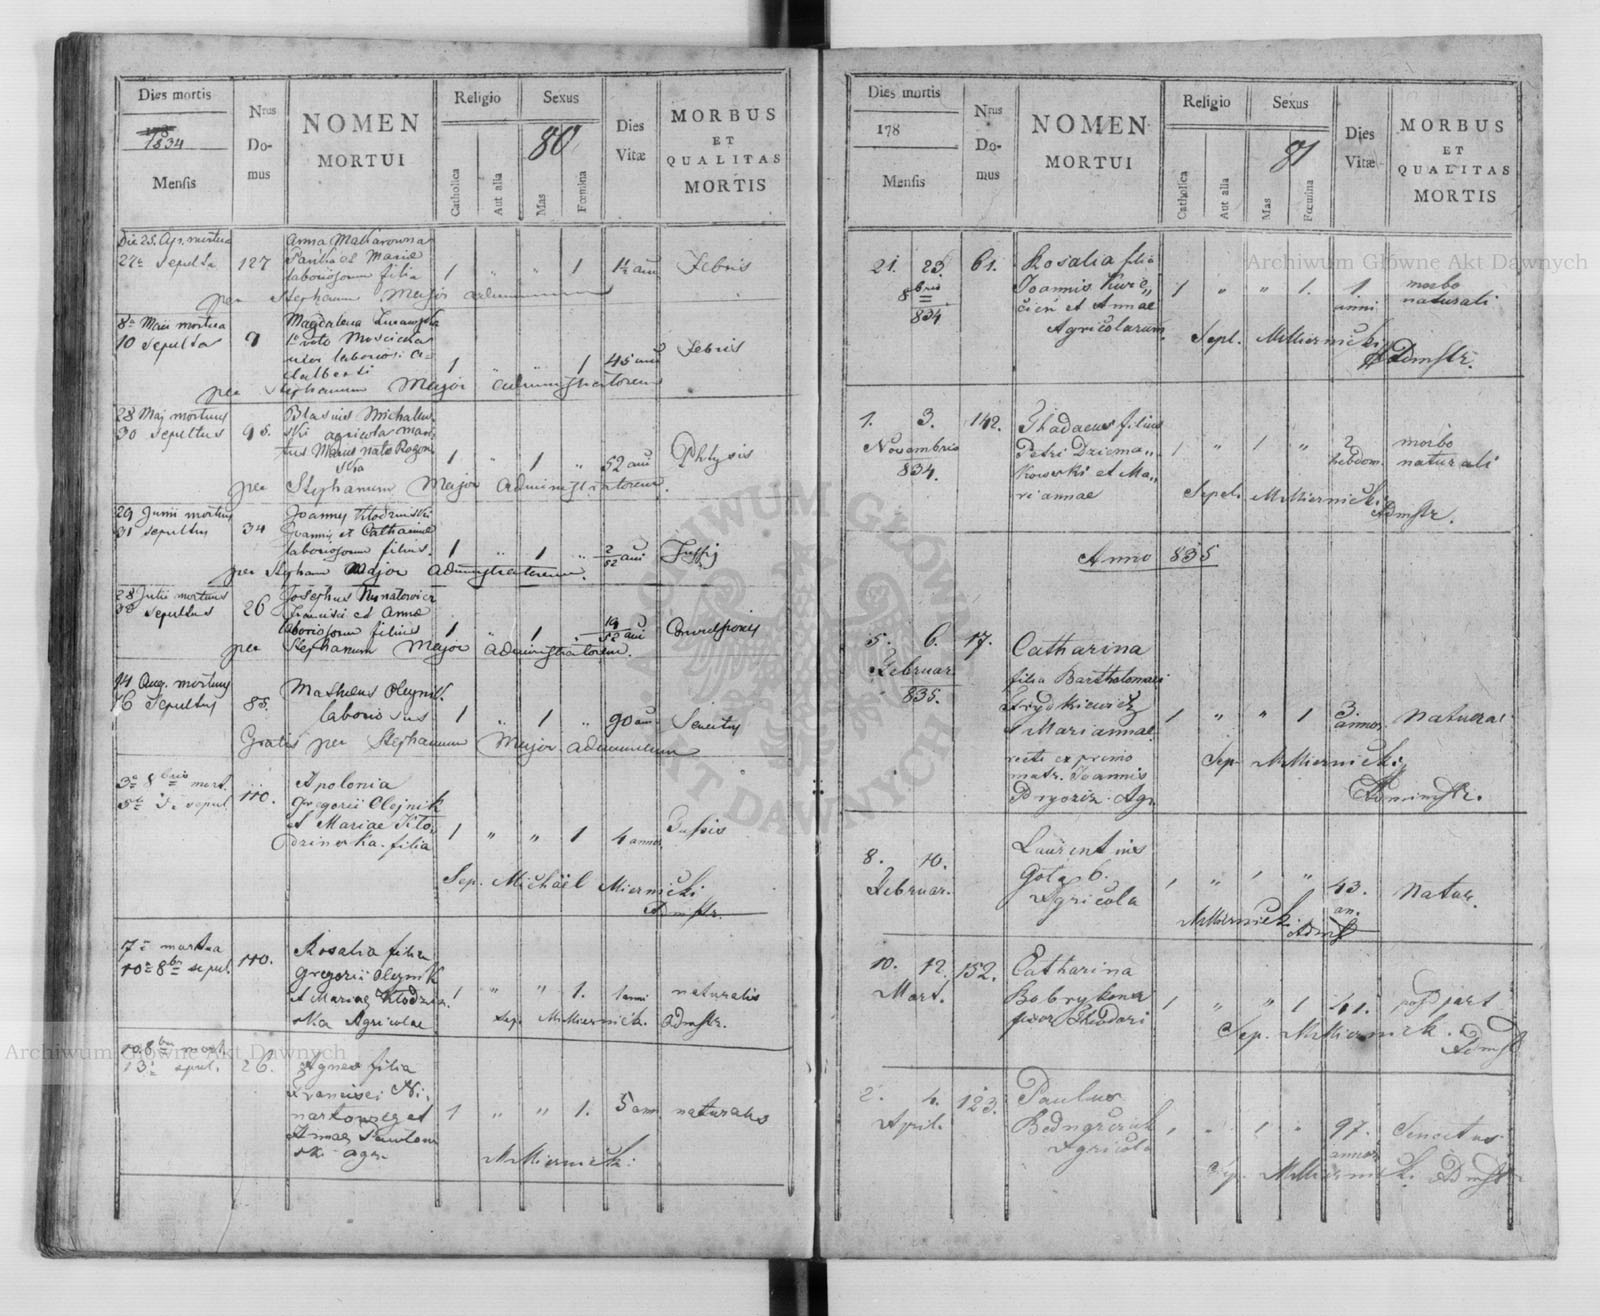 Dies mortis
1834
Mensis
Nrus
Do-
mus
NOMEN
MORTUI
Religio
Sexus
80
Catholica
Aut alia
Mas
Fœmina
Dies
Vitæ
MORBUS
ET
QUALITAS
MORTIS
Die 25. Apr. mortua
27a Sepulta
127
Anna Makarowna
Pauli et Mariæ
laboriosorum filia
1 " " 1
Febris
per Stephanum Major
8a Maii mortua
10 Sepulta
9
Magdalena
1o voto Moscicka
uxor laboriosi A-
dalberti
1 " " 1
45 anni
Febris
per Stephanum Major administratorem
28 Maj mortuus
30 sepultus
95.
Blasius Michalew-
ski agricola mari-
1 " 1 "
52 anni
Phtysis
per Stephanum Major administratorem.
29 Junii mortuus
31 sepultus
34
Joannes Kłodzinski
Joannis et Catharinæ
laboriosorum filius.
1 " 1 "
2/52 anni
Tussis
per Stephanum Major administratorem.
28 Julii mortuus
30 sepultus
26
Josephus
et Annæ
laboriosorum filius
1 " 1 "
19/52 anni
Convulsionis
per Stephanum Major administratorem.
14 Aug. mortuus
16 Sepultus
85.
Matheus Oleynik
laboriosus
1 " 1 "
90 an.
Senectus
Gratis per Stephanum Major
3a 8bris mort.
5ta sepul.
110.
Apolonia
Gregorii Olejnik
et Mariae Kło-
dzinska. filia
1 " " 1
4 annor.
Tussis
Sep. Michäel Miernicki
Admstr.
7a mortua
10a 8bri sepul.
110.
Rosalia filia
Gregorii Olejnik
et Mariae Kłodzin
ska Agricolae
1 " " 1.
1 anni
naturalis
Sep. MMiernick. Admstr.
10. 8bri mort.
13a sepul.
26.
Agnes filia
Francisci Ni-
nartowicz et
Annae Pawłow
ski agr.
1 " " 1.
5 ann.
naturalis
MMiernicki.
Dies mortis
178
Mensis
Nrus
Do-
mus
NOMEN
MORTUI
Religio
Sexus
81
Catholica
Aut alia
Mas
Fœmina
Dies
Vitæ
MORBUS
ET
QUALITAS
MORTIS
21. 23.
8bris
834
61.
Rosalia filia
Joannis
et Annae
Agricolarum.
1 " " 1.
1
anni
morbo
naturali
Sepl. MMiernicki
Admstr.
1. 3.
Novembris
834.
142.
Thadaeus filius
Petri Dziema„
kowski et Ma„
riannae
1 " 1 "
2
hebdom.
morbo
naturali
Sepel. MMiernicki
Admstr.
Anno 835
5. 6.
Februar.
835.
17.
Catharina
filia Bartholomaei
Frydkiewicz
Mariannae.
recte ex primo
matr. Joannis
Agr.
1 " " 1
3.
annor.
natural.
Sep. MMiernicki
Adminstr.
8. 10.
Februar.
Laurentius
Gołąb.
Agricola
1 " 1 "
43.
an.
Natur.
MMiernicki Admst
10. 12.
Mart.
152.
Catharina
Bobrykowa
uxor Theodori
1 " " 1
41.
post part
Sep. MMiernick. Admst
2. 4.
April.
123.
Paulus
Bednarczuk
Agricola
1 " 1 "
97.
annor.
Senectus
Sep. MMiernicki. Admstr
Archiwum Główne Akt Dawnych
Archiwum Główne Akt Dawnych
ARCHIWUM GŁÓWNE AKT DAWNYCH